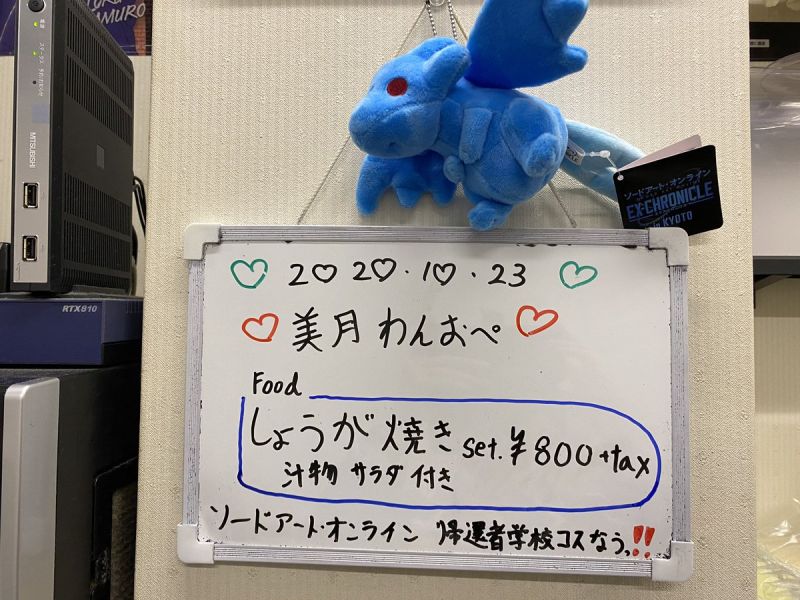 MURO
MITSUBISHI
RTX810
ソードアート・オンライン
EX-CHRONICLE
in KYOTO
♡ 2♡2♡.1♡.23 ♡
♡ 美月 わんおぺ ♡
Food
しょうが焼き set. ¥800+tax
汁物 サラダ付き
ソードアート・オンライン 帰還者学校コスなう。!!